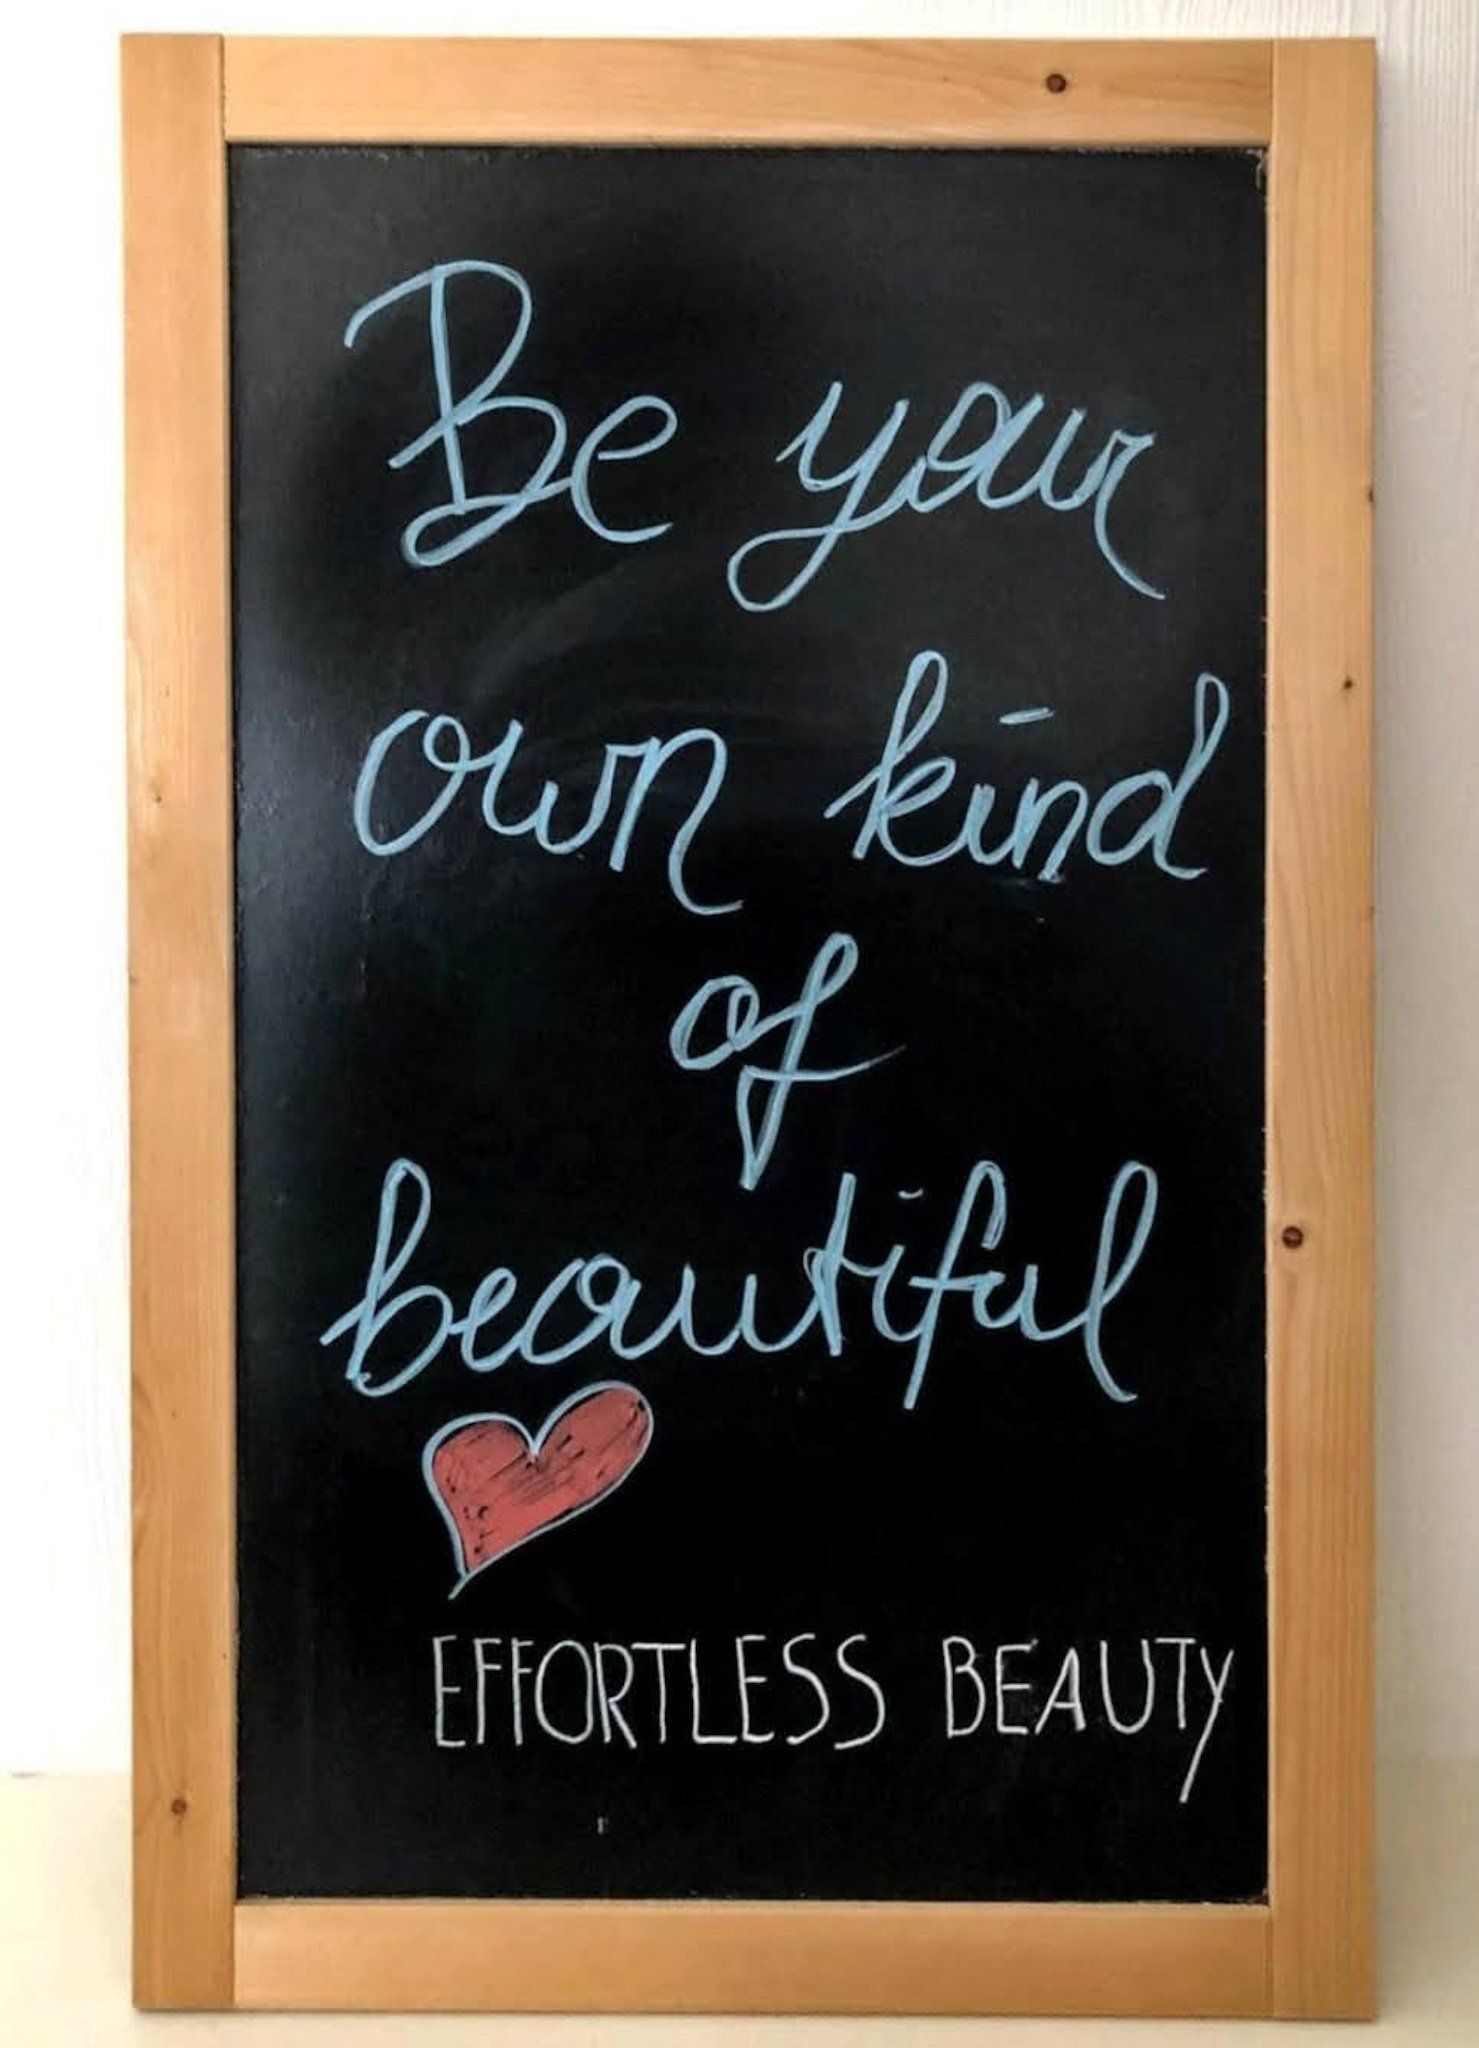 Be your
own kind
of
beautiful
EFFORTLESS BEAUTY